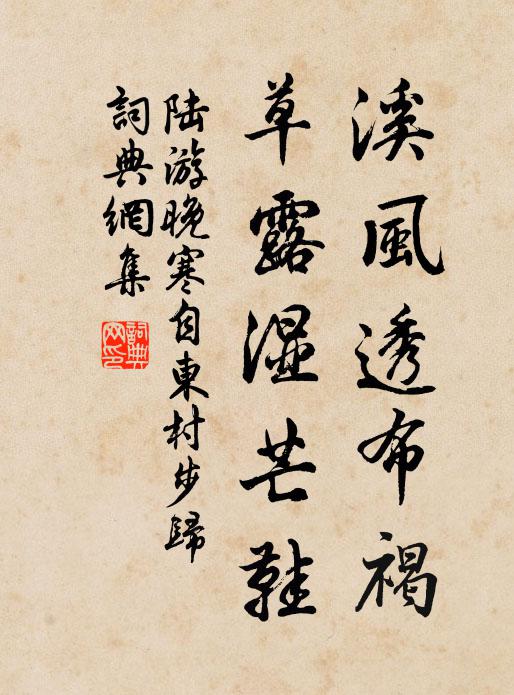 溪風透布褐
草露湿芒鞋
陆游晚寒自東村步歸
詞典網集
詞典网印